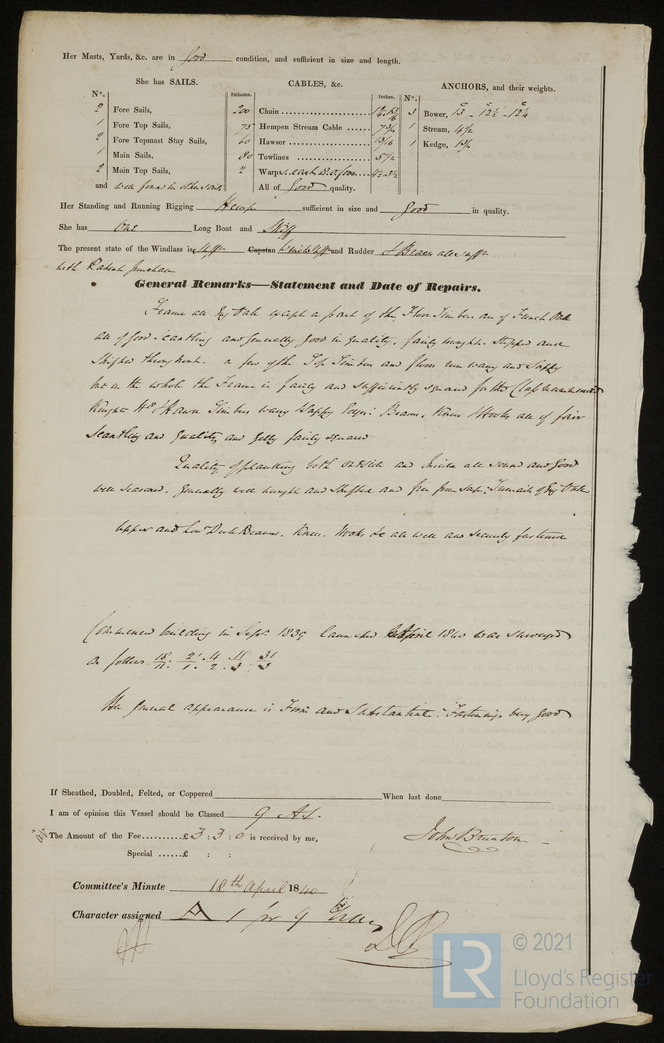 Her Masts, Yards, &c. are in good condition, and sufficient in size and length.
She has SAILS. CABLES, &c. ANCHORS, and their weights.
N°. Fathoms. Inches. N°.
2 Fore Sails, 200 Chain 3 Bower,
1 Fore Top Sails, 75 Hempen Stream Cable 1 Stream,
2 Fore Topmast Stay Sails, 60 Hawser 1 Kedge,
1 Main Sails, 80 Towlines
2 Main Top Sails, Warp
and well found in other sails All of Good quality.
Her Standing and Running Rigging Hemp sufficient in size and Good in quality.
She has One Long Boat and Skiff
The present state of the Windlass is Capstan and Rudder
with Patent purchase
General Remarks—Statement and Date of Repairs.
Frame all Eng Oak except a part of the Floor Timbers are of French Oak
all of good scantling and generally good in quality, fairly wrought. Stepped and
Shifted throughout. a few of the Top Timbers and floors run wany and Sappy
but on the whole the Frame is fairly and sufficiently squared for the Class
Knight Hds Hawse Timbers wany Sappy Edges: Beams, Knees Hooks all of fair
Scantling and quality and fairly squared
Quality of planking both outside and Inside all sound and good
well seasoned. generally well wrought and Shifted and free from sap; Treenails of Eng Oak
Upper and Low Deck Beams. Knees. Hooks &c all well and securely fastened
Commenced building in Sepr 1839 launched April 1840 was surveyed
as follows
Her general appearance is Firm and Substantial. Fastenings very good
If Sheathed, Doubled, Felted, or Coppered When last done
I am of opinion this Vessel should be Classed 9 A1.
The Amount of the Fee £3 : 3 : 0 is received by me,
John Brunton
Special £ : :
Committee's Minute 18th April 1840
Character assigned A 1 for 9 Years
© 2021
LR
Lloyd's Register
Foundation